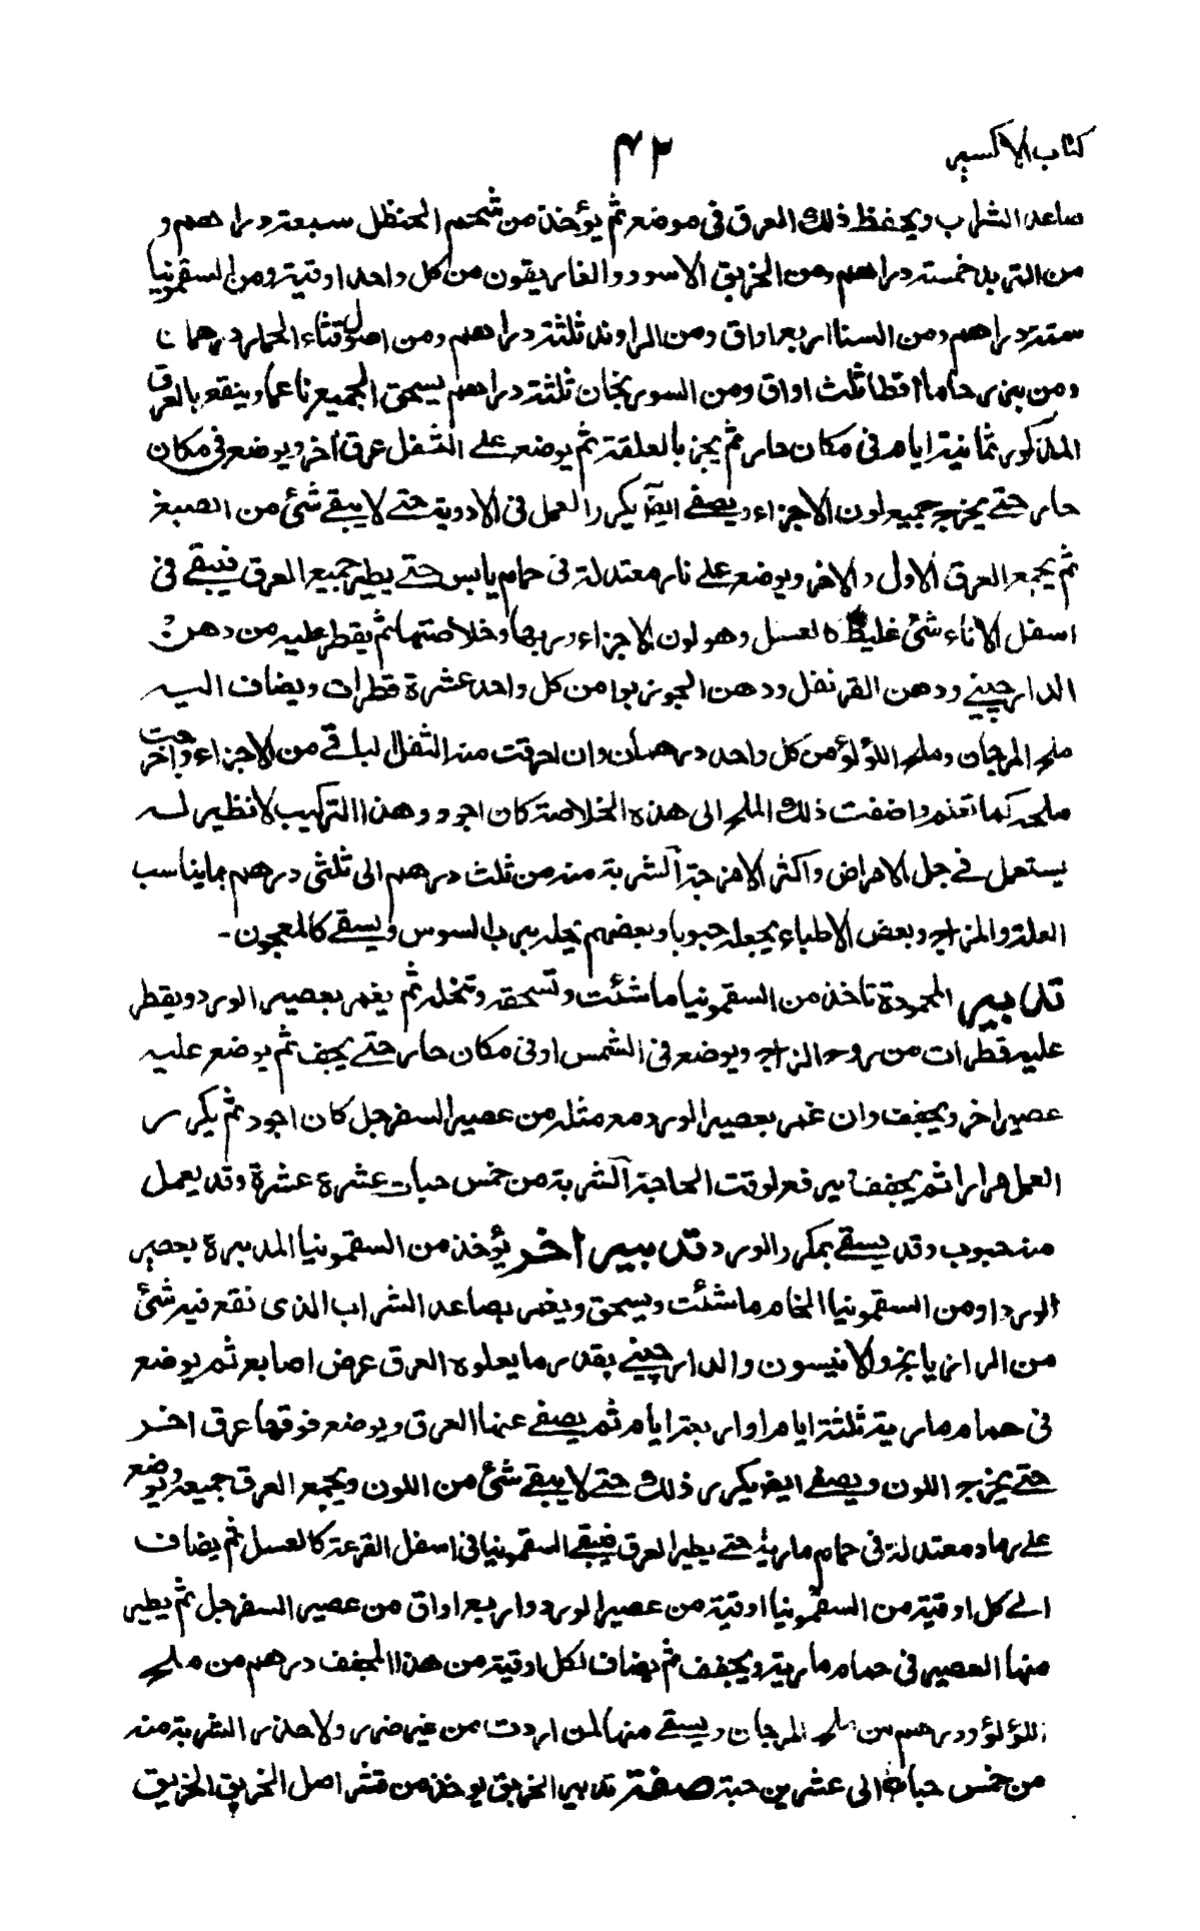 كتاب الاكسير
۴۲
صاعد الشراب ويحفظ ذلك العرق فى موضع ثم يؤخذ من شحم الحنظل سبعة دراهم و
من التربد خمسة دراهم ومن الخربق الاسود والغاريقون من كل واحد اوقية ومن السقمونيا
ستة دراهم ومن السنا اربع اواق ومن الراوند ثلثة دراهم ومن اصول قثاء الحمار درهمان
ومن هزارجاما اقطا ثلث اواق ومن السورنجان ثلثة دراهم يسحق الجميع ناعما وينقع بالعرق
المذكور ثمانية ايام فى مكان حار ثم يجز بالعلقة ثم يوضع على الثفل عرق اخر ويوضع فى مكان
حار حتے يخرج جميع لون الاجزاء ويصفے ايضا يكرر العمل فى الادوية حتے لا يبقے شئ من الصبغ
ثم يجمع العرق الاول والاخر ويوضع علے نار معتدلة فى حمام يابس حتے يطير جميع العرق فيبقے فى
اسفل الاناء شئ غليظ كالعسل وهو لون الاجزاء وربها وخلاصتها ثم يقطر عليه من دهن
الدارچينے ودهن القرنفل ودهن الجوز بوا من كل واحد عشرة قطرات ويضاف اليه
ملح المرجان وملح اللؤلؤ من كل واحد درهمان وان احرقت منه الثفل الباقے من الاجزاء واخرجت
ملحه كما تقدم واضفت ذلك الملح الى هذه الخلاصة كان اجود وهذا التركيب لا نظير له
يستعمل فے جل الامراض واكثر الامزجة الشربة منه من ثلث درهم الى ثلثى درهم بما يناسب
العلة والمزاج وبعض الاطباء يجعله حبوبا وبعضهم يحله برب السوس ويسقے كالمعجون-
تدبير المحمودة تاخذ من السقمونيا ما شئت وتسحقه وتنخله ثم يغمر بعصير الورد ويقطر
عليه قطرات من روح الزاج ويوضع فى الشمس او فى مكان حار حتے يجف ثم يوضع عليه
عصير اخر ويجفف وان غمر بعصير الورد مع مثله من عصير السفرجل كان اجود ثم يكرر
العمل مرارا ثم يجفف ويرفع لوقت الحاجة الشربة من خمس حبات عشرة عشرة وقد يعمل
منه حبوب وقد يسقے بمكرر الورد تدبير اخر يؤخذ من السقمونيا المدبرة بعصير
الورد او من السقمونيا الخام ما شئت ويسحق ويغمر بصاعد الشراب الذى نقع فيه شئ
من الرازيانج والانيسون والدارچينے بقدر ما يعلوه العرق عرض اصابع ثم يوضع
فى حمام مارية ثلثة ايام او اربعة ايام ثم يصفے عنها العرق ويوضع فوقها عرق اخر
حتے يخرج اللون ويصفے ايضا يكرر ذلك حتے لا يبقے شئ من اللون ويجمع العرق جميعه ويوضع
علے رماد معتدلة فى حمام مارية حتے يطير العرق فيبقے السقمونيا فى اسفل القرعة كالعسل ثم يضاف
الے كل اوقية من السقمونيا اوقية من عصير الورد واربع اواق من عصير السفرجل ثم يطير
منها العصير فى حمام مارية ويجفف ثم يضاف لكل اوقية من هذا المجفف درهم من ملح
اللؤلؤ ودرهم من ملح المرجان ويسقے منها لمن اردت من غير ضرر ولا حذر الشربة منه
من خمس حبات الى عشرين حبة صفة تدبير الخربق يوخذ من قشر اصل الخربق الخربق